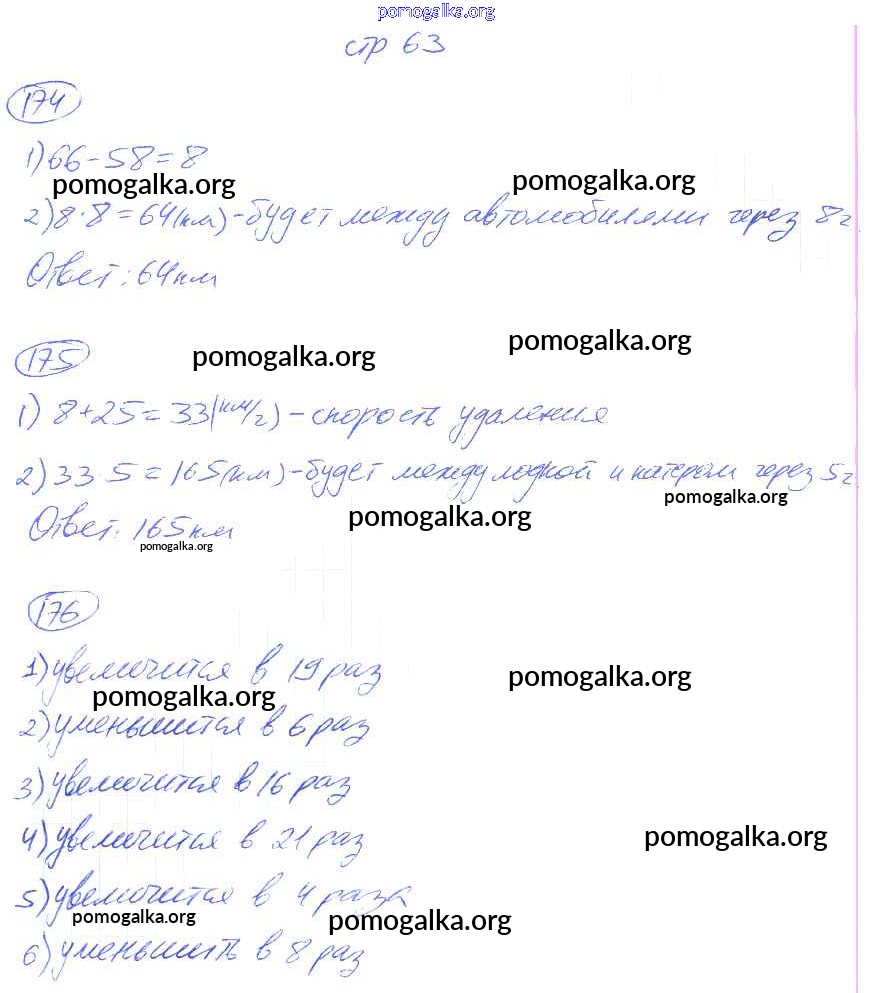 pomogalka.org
стр 63
174
1) 66 - 58 = 8
pomogalka.org pomogalka.org
2) 8 · 8 = 64 (км) - будет между автомобилями через 8 ч
Ответ: 64 км
175
pomogalka.org pomogalka.org
1) 8 + 25 = 33 (км/ч) - скорость удаления
2) 33 5 = 165 (км) - будет между лодкой и катером через 5 ч
pomogalka.org
Ответ: 165 км
pomogalka.org pomogalka.org
176
1) увеличится в 19 раз
pomogalka.org pomogalka.org
2) уменьшится в 6 раз
3) увеличится в 16 раз
4) увеличится в 21 раз
pomogalka.org
5) увеличится в 4 раза
pomogalka.org pomogalka.org
6) уменьшить в 8 раз